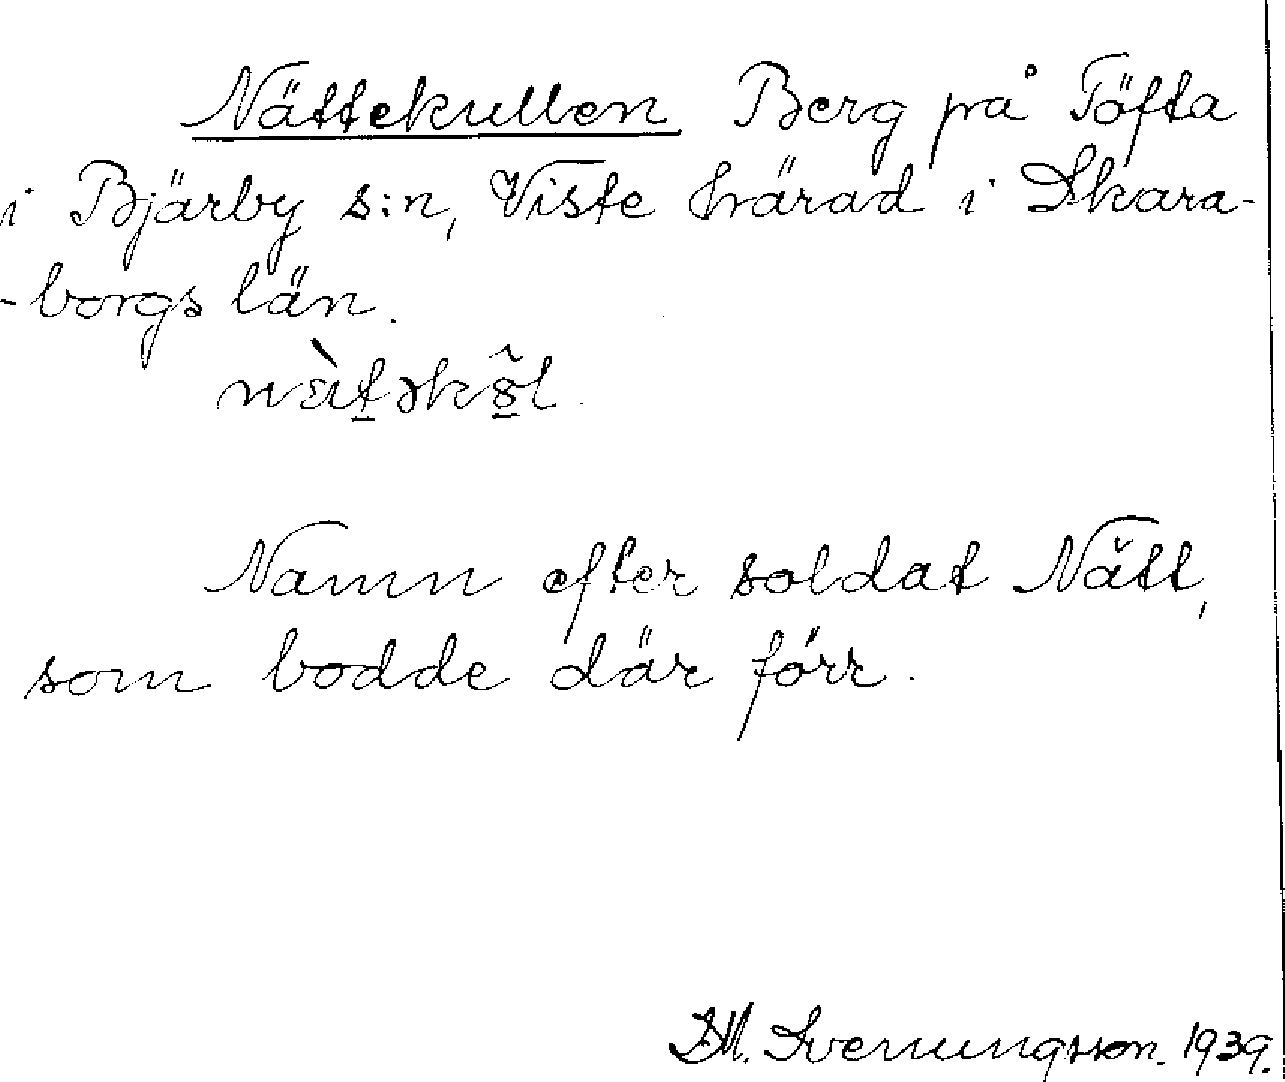 Nättekullen Berg på Töfta
i Bjärby s:n, Viste härad i Skara-
-borgs län.
Namn efter soldat Nätt,
som bodde där förr.
Svenungsson. 1939.